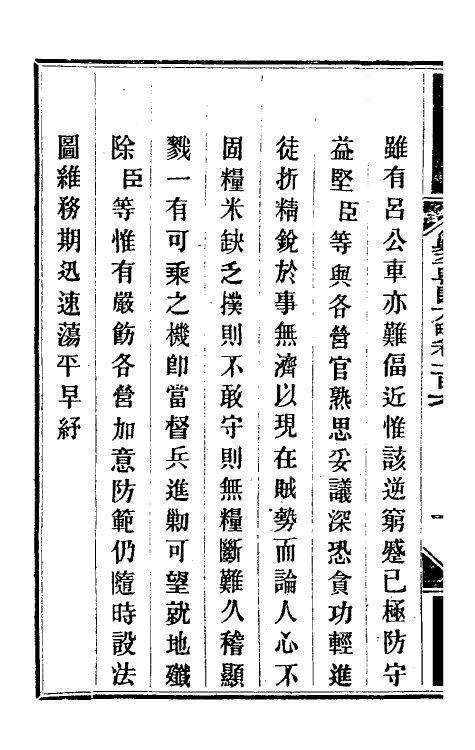 雖有呂公車亦難偪近惟該逆窮蹙已極防守
益堅臣等與各營官熟思妥議深恐貪功輕進
徒折精銳於事無濟以現在賊勢而論人心不
固糧米缺乏撲則不敢守則無糧斷難久稽顯
戮一有可乘之機卽當督兵進勦可望就地殲
除臣等惟有嚴飭各營加意防範仍隨時設法
圖維務期迅速蕩平早紓